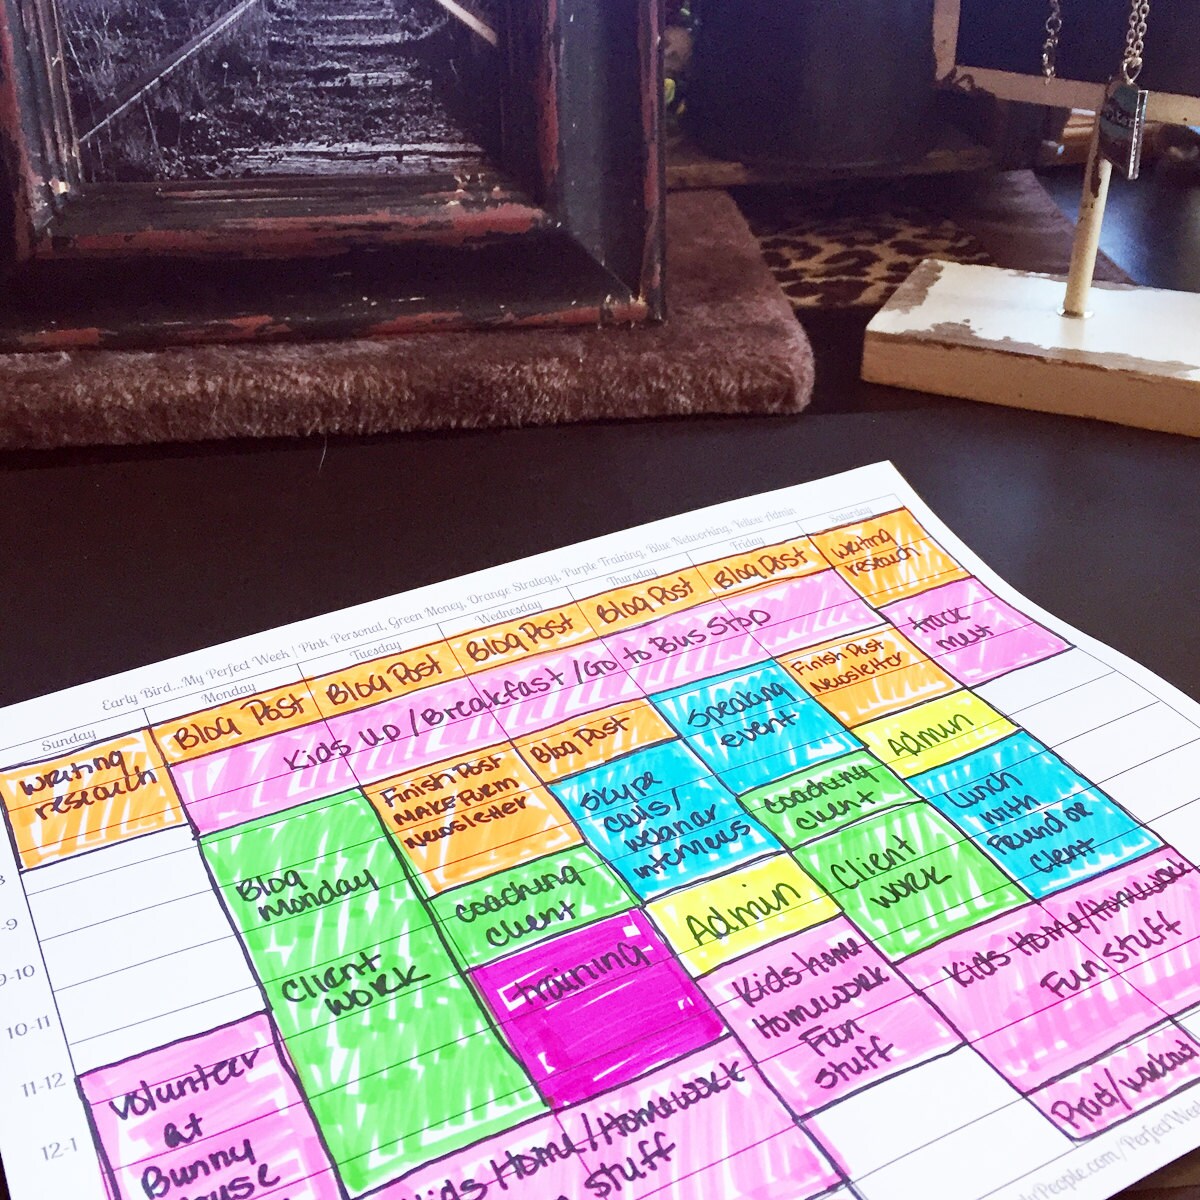 Early Bird...My Perfect Week | Pink Personal, Green Money, Orange Strategy, Purple Training, Blue Networking, Yellow Admin
Sunday
Monday
Tuesday
Wednesday
Thursday
Friday
Saturday
Writing
research
Blog Post
Blog Post
Blog Post
Blog Post
Blog Post
Writing
research
Kids up / Breakfast / Go to Bus Stop
track
meet
Blog
Monday
Client
work
Finish Post
Make Form
Newsletter
coaching
client
training
Blog Post
Skype
calls/
webinar
interviews
Admin
Speaking
event
coaching
client
Client
work
Finish Post
Newsletter
Admin
Lunch
with
Friend or
client
Kids home
Homework
Fun
stuff
Kids Home/Homework
Fun stuff
Kids Home/Homework
stuff
Volunteer
at
Bunny
9-10
10-11
11-12
12-1
People.com/Perfect